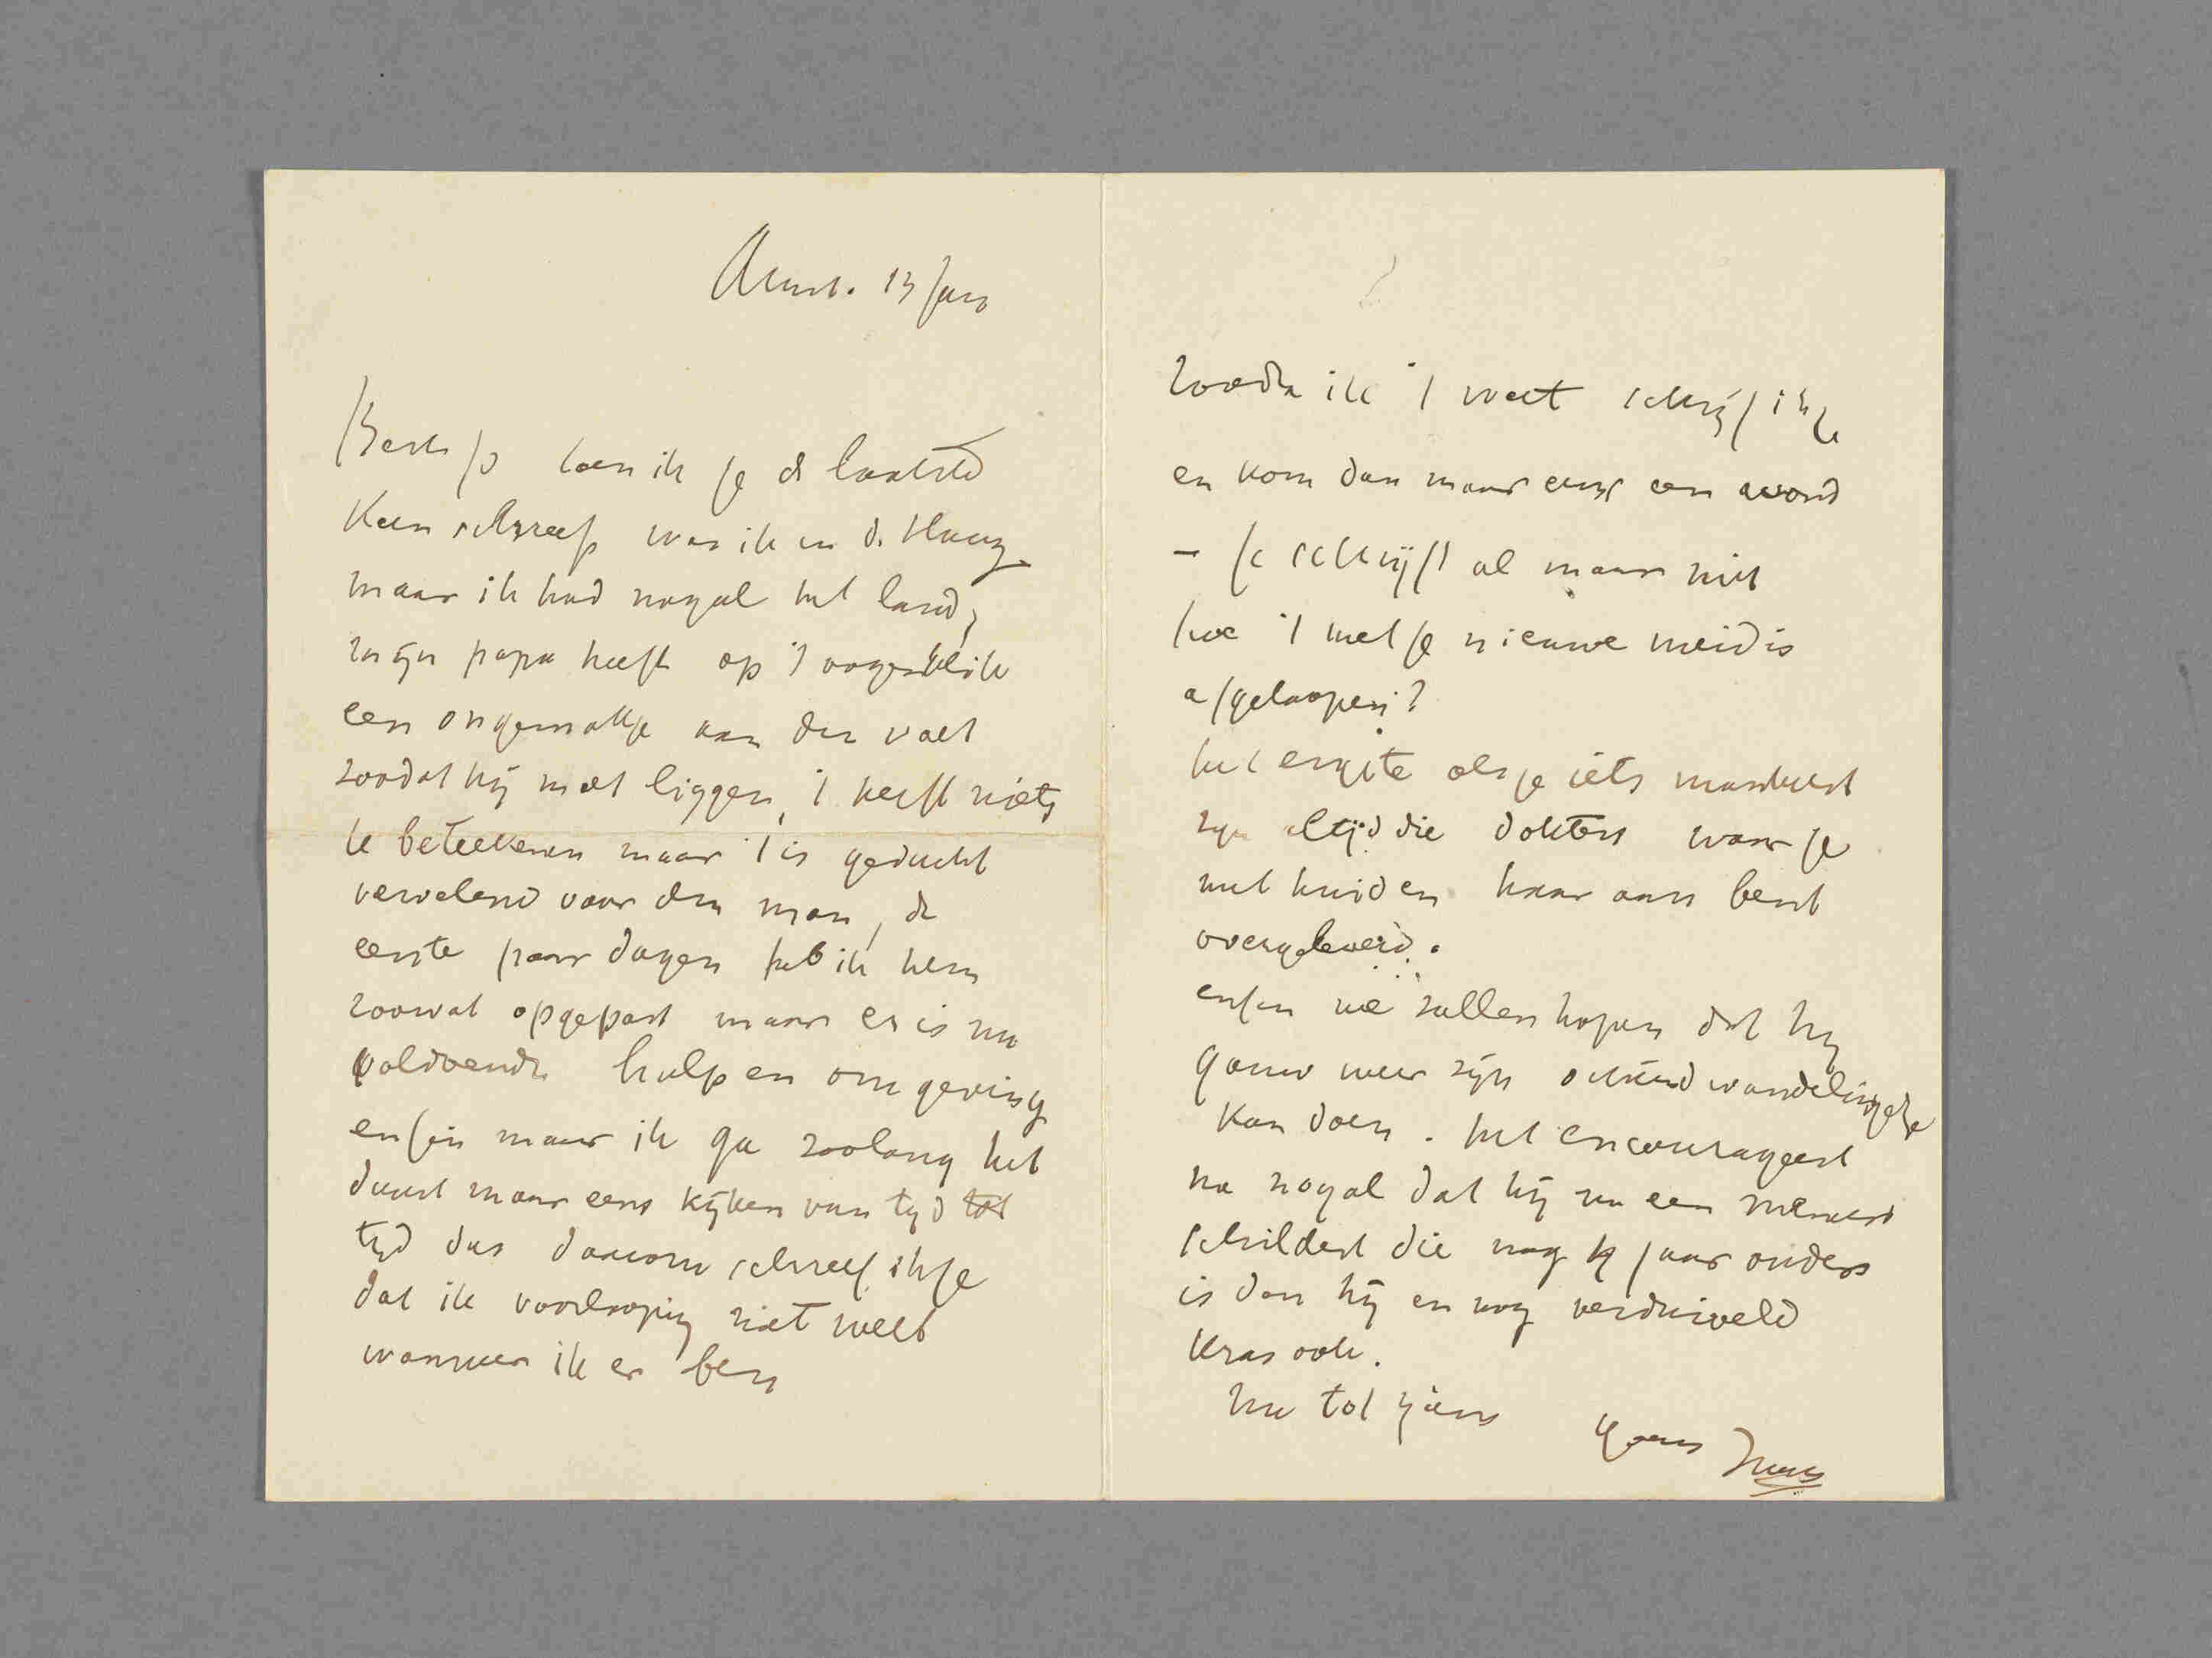 Amst. 13 Jan
Beste Jo toen ik je de laatste
keer schreef was ik in d. Haag
maar ik had nogal het land,
mijn papa heeft op 't oogenblik
een ongemakje aan den voet
zoodat hij moet liggen, 't heeft niets
te beteekenen maar 't is geducht
vervelend voor den man, de
eerste paar dagen heb ik hem
zoowat opgepast maar er is nu
voldoende hulp en omgeving
enfin maar ik ga zoolang het
duurt maar eens kijken van tijd tot
tijd dus daarom schreef ik je
dat ik voorloopig niet weet
wanneer ik er ben
zoodra ik 't weet schrijf ik je
en kom dan maar eens een avond
– je schrijft al maar niet
hoe 't met je nieuwe meid is
afgeloopen?
het ergste als je iets mankeert
zijn altijd die dokters waar je
met huid en haar aan bent
overgeleverd.
enfin we zullen hopen dat hij
gauw weer zijn ochtendwandelingetje
kan doen. het encourageert
me nogal dat hij nu een meneer
schildert die nog 4 jaar ouder
is dan hij en nog verduiveld
kras ook.
nu tot ziens